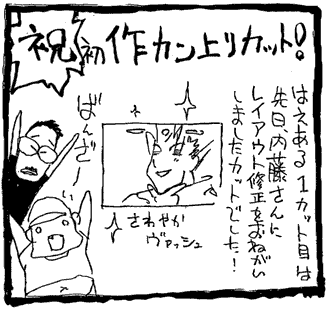 祝 初 作カン上りカット!
はえある1カット目は
先日、内藤さんに
レイアウト修正をおねがい
しましたカットでした!
ばんざーい
さわやか
ヴァッシュ